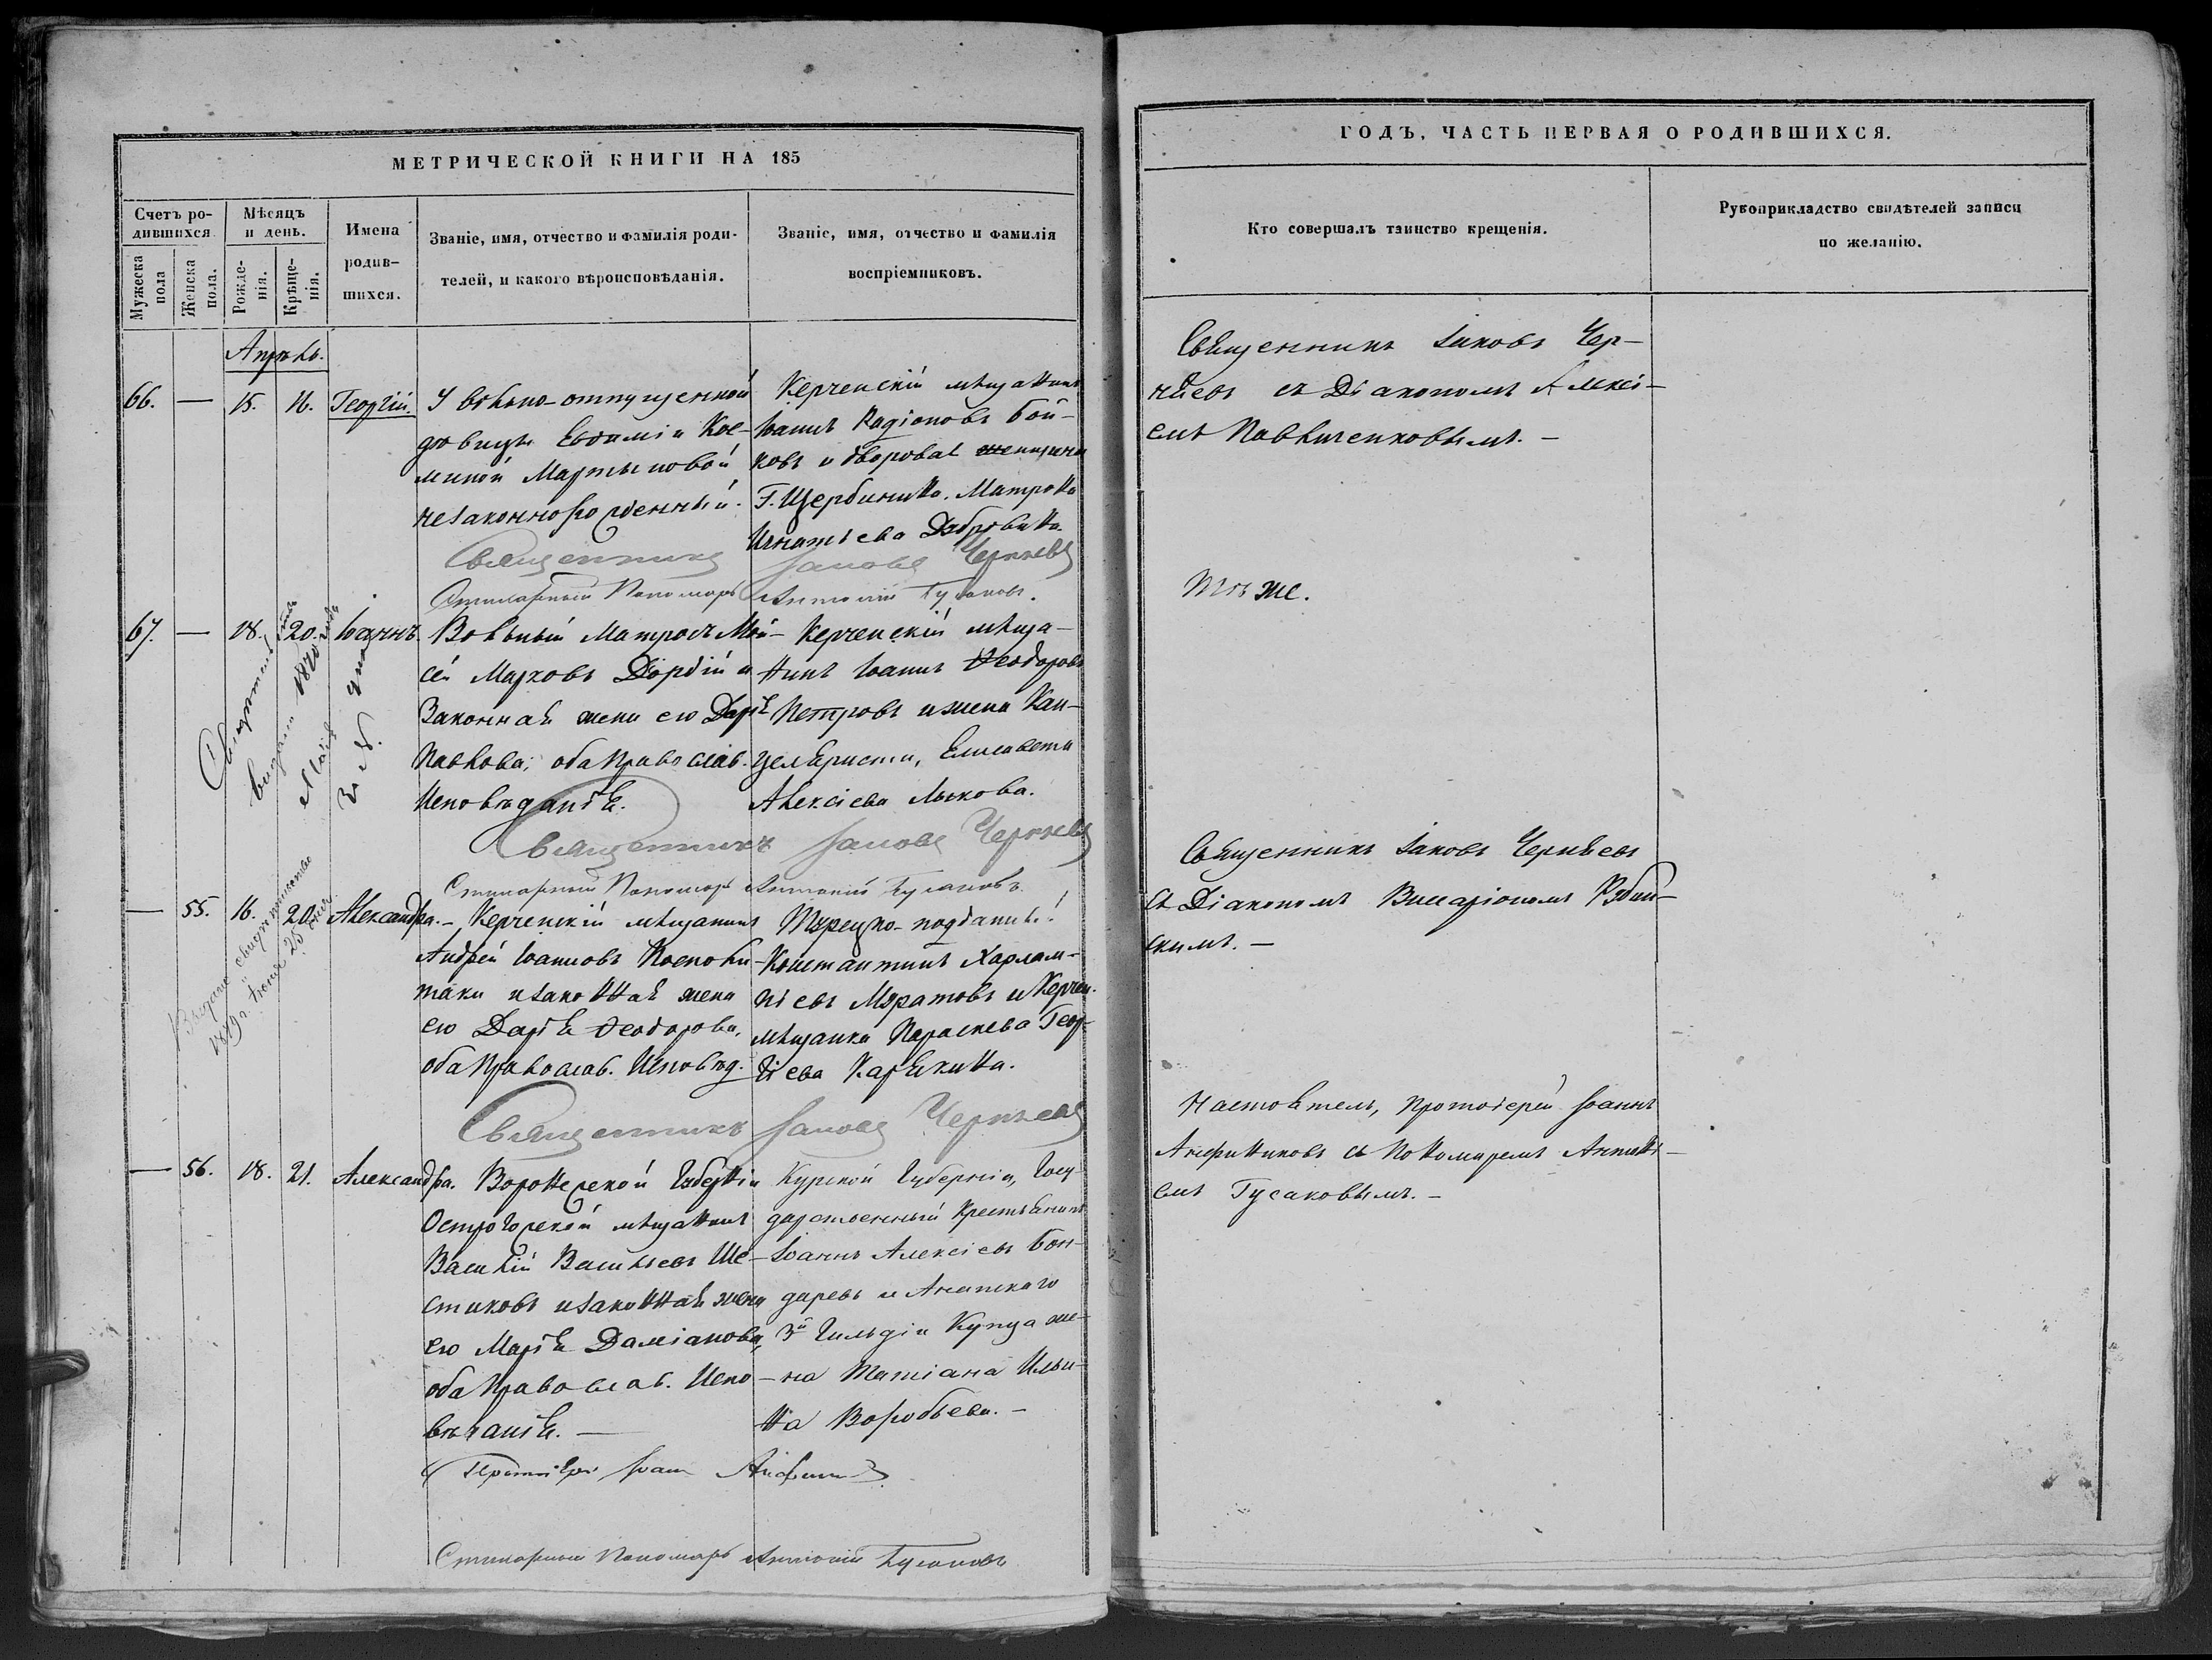 МЕТРИЧЕСКОЙ КНИГИ НА 185
Счетъ ро-
дившихся
Мужеска пола
Женска пола.
Мѣсяцъ
и день.
Рожде-
нія.
Крѣще-
нія.
Имена
родив-
шихся.
Званіе, имя, отчество и фамилія роди-
телей, и какого вѣроисповѣданія.
Званіе, имя, отчество и фамилія
воспріемниковъ.
Апрѣль.
66. — 15. 16. Георгій.
У вольно-отпущенной
вдовицы Евдиміи Кос-
миной Мартыновой
незаконнорожденный.
Керченскій мѣщанинъ
Іоаннъ Радіоновъ Бой-
ковъ и дворовая женщина
Г. Щербинина. Матрона
Игнатьева Дубровина
Священникъ Іаковъ Чернявъ
Стихарный Пономарь Антоній Гусаковъ.
67. — 18. 20. Іоаннъ.
Вольный Матросъ Мои-
сей Марковъ Діордій и
Законная жена его Дарія
Павлова, оба Православ.
Исповѣданія.
Керченскій мѣща-
нинъ Іоаннъ Ѳеодоровъ
Петровъ и жена Кан-
целяриста, Елисавета
Алексіева Лыкова.
Священникъ Іаковъ Чернявъ
Стихарный Пономарь Антоній Гусаковъ.
Выдано свидѣтельство
1869 г. Іюня 25 дня
— 55. 16. 20. Александра.
Керченскій мѣщанинъ
Андрей Іоанновъ
и законная жена
его Дарія Ѳеодорова,
оба Православ. Исповѣд.
Турецко-подданный
Константинъ Харлам-
піевъ Муратовъ и Керчен.
мѣщанка Параскева Геор-
гіева Карякина.
Священникъ Іаковъ Чернявъ
— 56. 18. 21. Александра.
Воронежской Губерніи
Острогорской мѣщанинъ
Василій Васильевъ Ше-
стиковъ и законная жена
его Марія Даміанова,
оба Православ. Испо-
вѣданія. —
Курской Губерніи, Госу-
дарственный Крестьянинъ
Іоаннъ Алексіевъ Бон-
даревъ и Анапскаго
3й Гильдіи Купца же-
на Татіана Ильи-
на Воробьева. —
Протоіерей Іоаннъ
Стихарный Пономарь Антоній Гусаковъ
ГОДЪ, ЧАСТЬ ПЕРВАЯ О РОДИВШИХСЯ.
Кто совершалъ таинство крещенія.
Рукоприкладство свидѣтелей записи
по желанію.
Священникъ Іаковъ Чер-
няевъ съ Діакономъ Алексі-
емъ Павличенковымъ. —
Тѣ же.
Священникъ Іаковъ Черняевъ
съ Діакономъ Виссаріономъ Рубан-
скимъ. —
Настоятель, Протоіерей Іоаннъ
съ Пономаремъ Антоні-
емъ Гусаковымъ. —